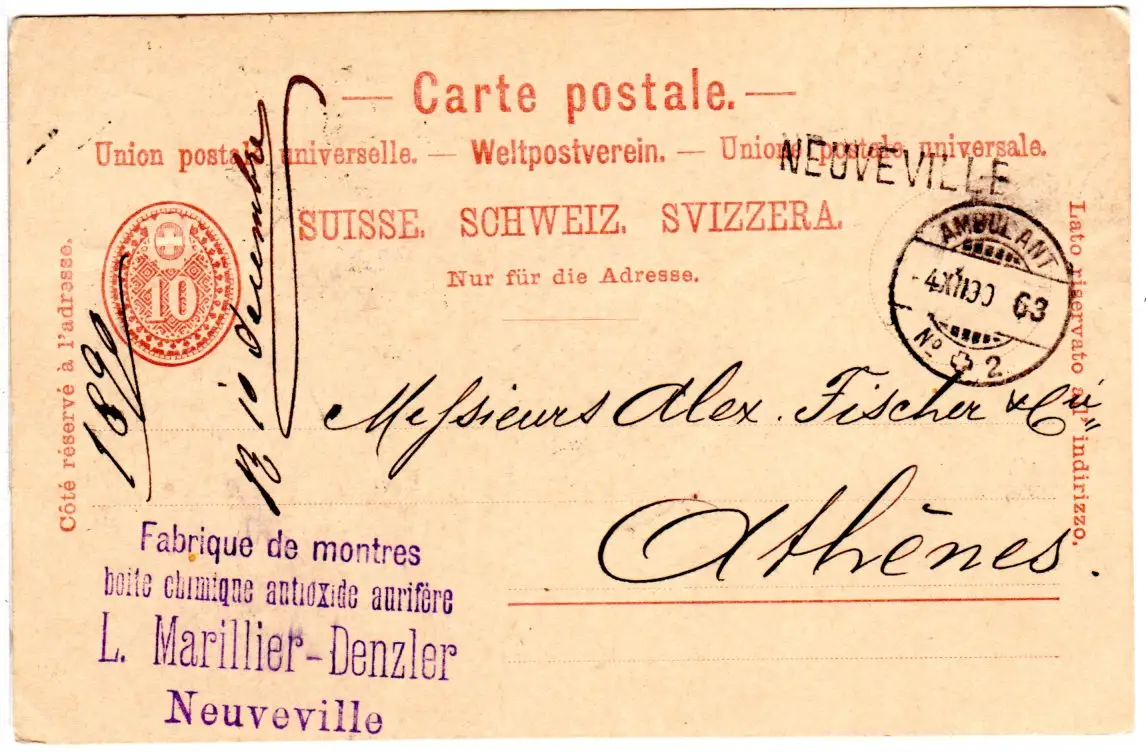 — Carte postale. —
Union postale universelle. — Weltpostverein. — Unione postale universale.
NEUVEVILLE
SUISSE. SCHWEIZ. SVIZZERA.
Nur für die Adresse.
Côté réservé à l'adresse.
Lato riservato all' indirizzo.
10
AMBULANT
4 XII 90 63
No 2
1890
10 décembre
Messieurs Alex. Fischer & Cie
Athènes.
Fabrique de montres
boite chimique antioxide aurifère
L. Marillier-Denzler
Neuveville